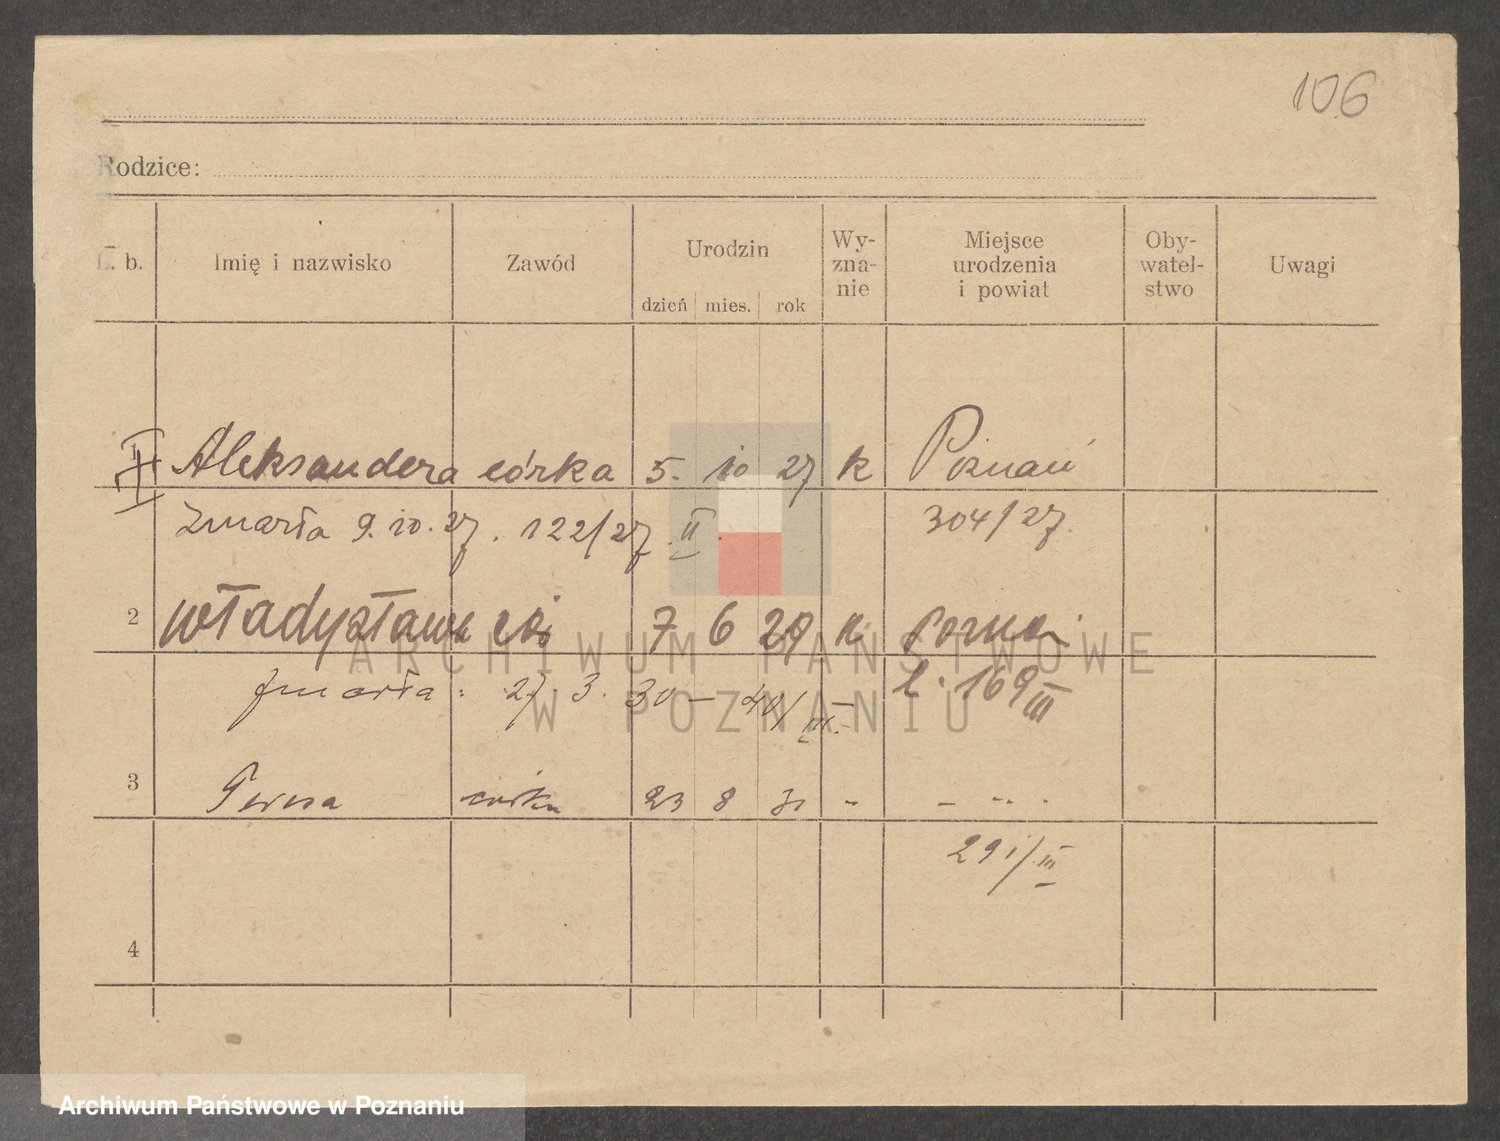 106
Rodzice:
L. b. Imię i nazwisko Zawód Urodzin dzień mies. rok Wy-zna-nie Miejsce urodzenia i powiat Oby-watel-stwo Uwagi
1 Aleksandera córka 5. 10 27 k Poznań
zmarła 9. 10. 27. 122/27 II 304/27
2 Władysława 7 6 29 k Poznań
zmarła: 27. 3. 30 – 40/III. l. 169 III
3 Teresa córka 23 8 31 " – " –
291/III
4
ARCHIWUM PAŃSTWOWE
W POZNANIU
Archiwum Państwowe w Poznaniu